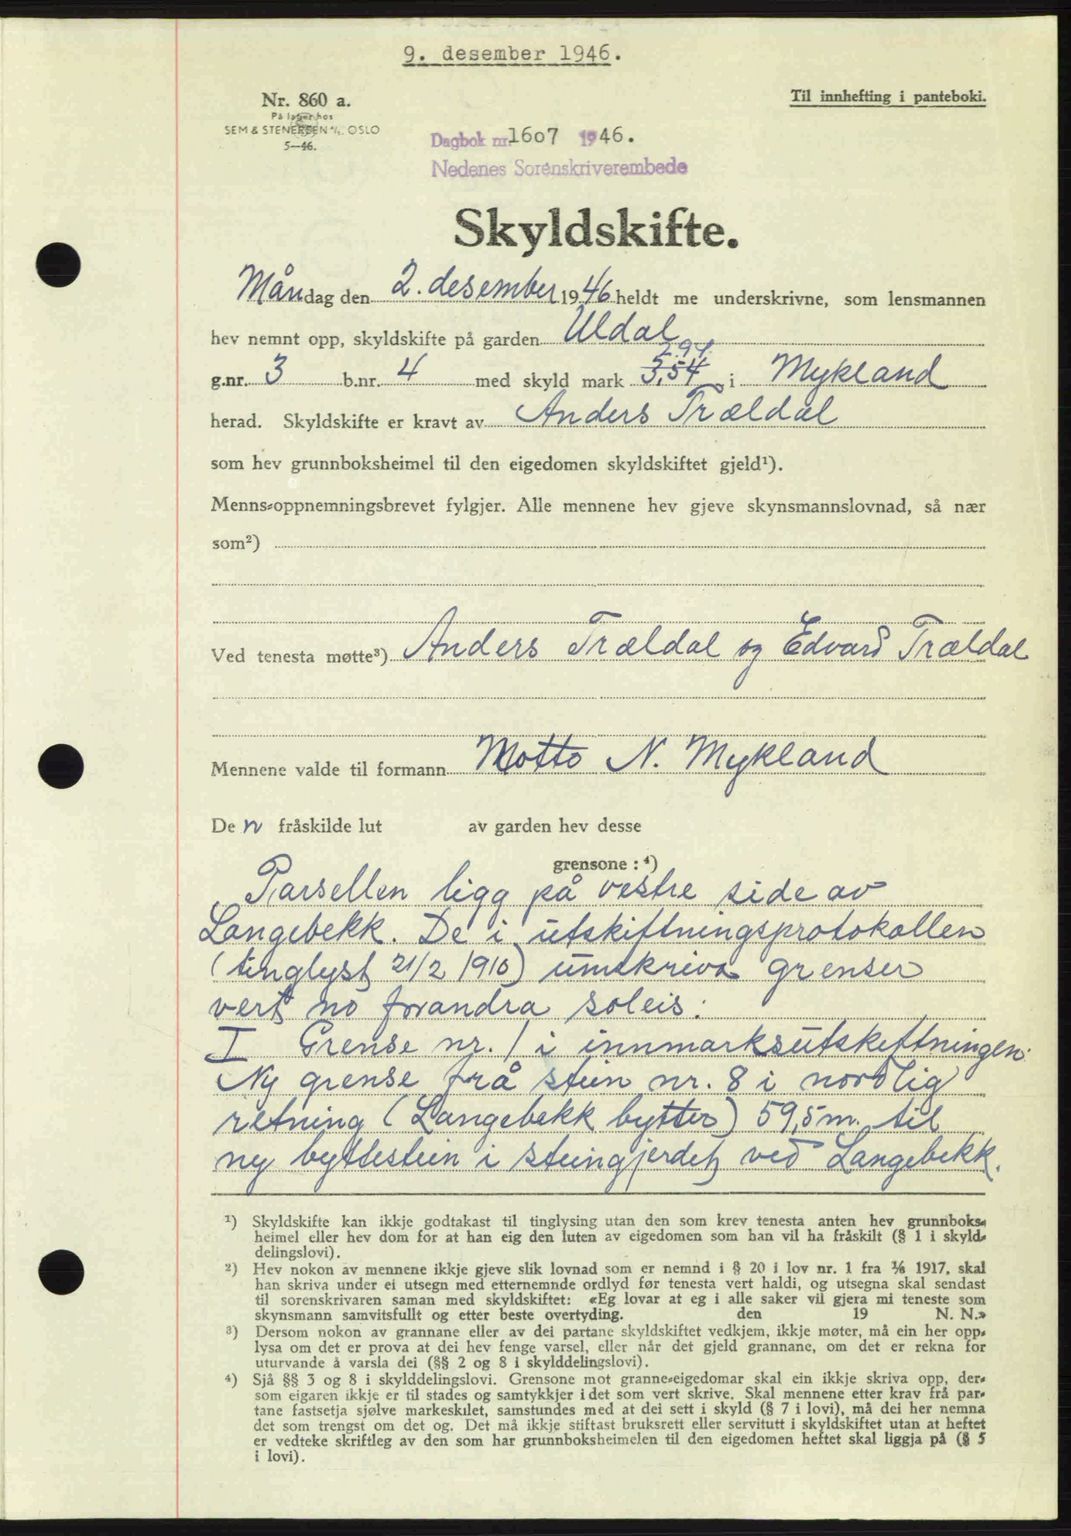 9. desember 1946.
Nr. 860 a.
På lager hos
SEM & STENERSEN A/S, OSLO
5—46.
Til innhefting i panteboki.
Dagbok nr. 1607 1946.
Nedenes Sorenskriverembede
Skyldskifte.
Måndag den 2. desember 1946 heldt me underskrivne, som lensmannen
hev nemnt opp, skyldskifte på garden Uldal
2.97
g.nr. 3 b.nr. 4 med skyld mark 3,54 i Mykland
herad. Skyldskifte er kravt av Anders Trældal
som hev grunnboksheimel til den eigedomen skyldskiftet gjeld¹).
Menns-oppnemningsbrevet fylgjer. Alle mennene hev gjeve skynsmannslovnad, så nær
som²)
Ved tenesta møtte³) Anders Trældal og Edvard Trældal
Mennene valde til formann Motto N. Mykland
Den fråskilde lut av garden hev desse
grensone : ⁴)
Parsellen ligg på vestre side av
Langebekk. De i utskiftningsprotokollen
(tinglyst 21/2 1910) umskriva grenser
vert no forandra soleis:
I Grense nr. 1 i innmarksutskiftningen:
Ny grense frå stein nr. 8 i nordlig
retning (Langebekk bytter) 59,5 m. til
ny byttestein i steingjerdet ved Langebekk.
¹) Skyldskifte kan ikkje godtakast til tinglysing utan den som krev tenesta anten hev grunnboks-
heimel eller hev dom for at han eig den luten av eigedomen som han vil ha fråskilt (§ 1 i skyld-
delingslovi).
²) Hev nokon av mennene ikkje gjeve slik lovnad som er nemnd i § 20 i lov nr. 1 fra ⅙ 1917, skal
han skriva under ei utsegn med etternemnde ordlyd før tenesta vert haldi, og utsegna skal sendast
til sorenskrivaren saman med skyldskiftet: «Eg lovar at eg i alle saker vil gjera mi teneste som
skynsmann samvitsfullt og etter beste overtyding. den 19 N. N.»
³) Dersom nokon av grannane eller av dei partane skyldskiftet vedkjem, ikkje møter, må ein her opp-
lysa om det er prova at dei hev fenge varsel, eller når det gjeld grannane, om det er rekna for
uturvande å varsla dei (§§ 2 og 8 i skylddelingslovi).
⁴) Sjå §§ 3 og 8 i skylddelingslovi. Grensone mot granne-eigedomar skal ein ikkje skriva opp, der-
som eigaren ikkje er til stades og samtykkjer i det som vert skrive. Skal mennene etter krav frå par-
tane fastsetja sjølve markeskilet, samstundes med at dei sett i skyld (§ 7 i lovi), må dei her nemna
det som trengst om det og. Det må ikkje stiftast bruksrett eller servitutt i skyldskiftet utan at heftet
er vedteke skriftleg av den som har grunnboksheimelen til den eigedomen heftet skal liggja på (§ 5
i lovi).